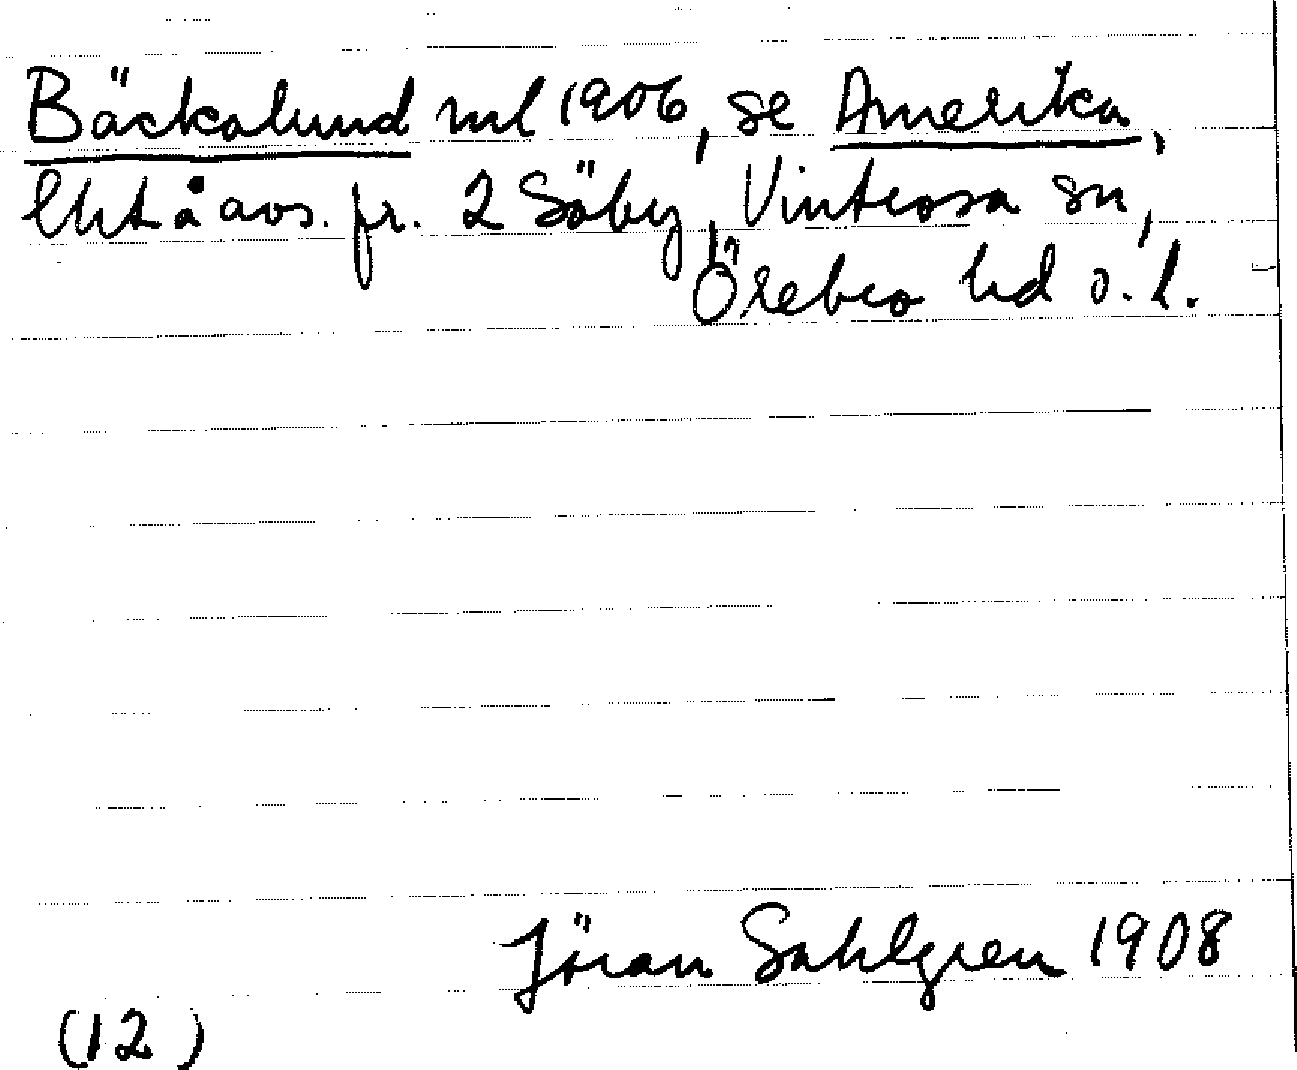 Bäckalund ml 1906, se Amerika,
lht å avs. fr. 2 Söby, Vintrosa sn,
Örebro hd o. l.
Jöran Sahlgren 1908
(12)